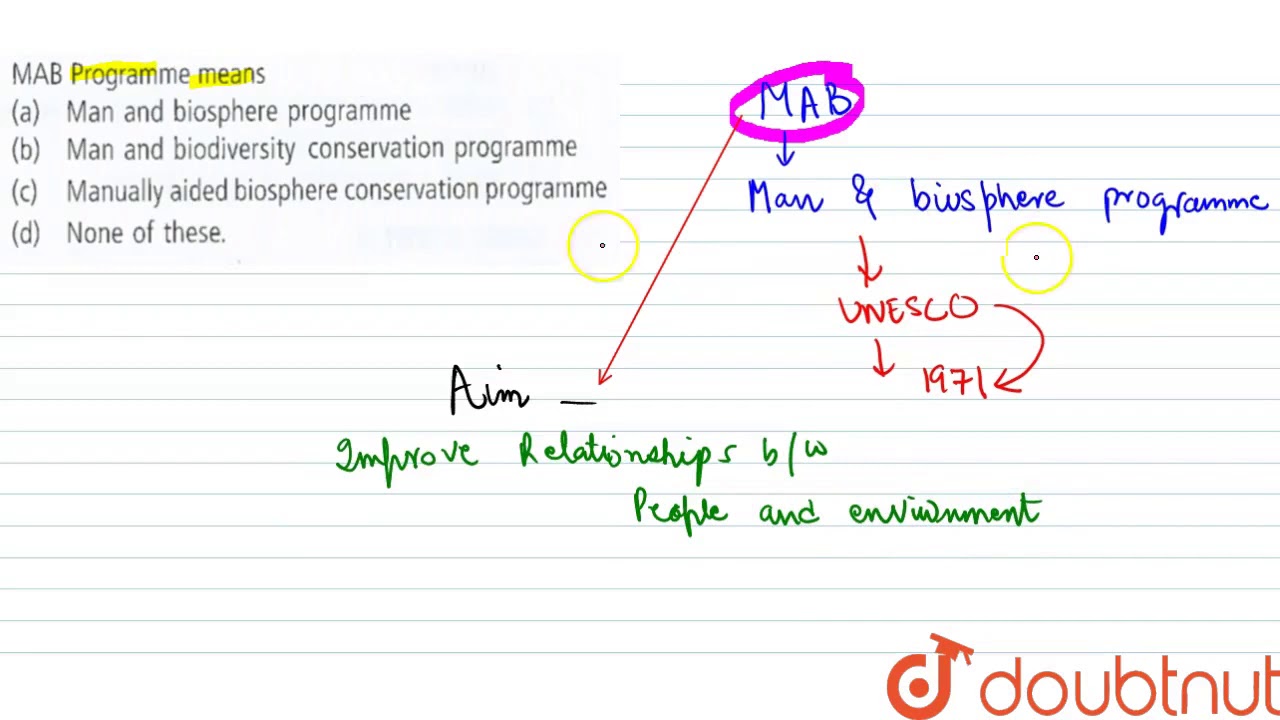 MAB Programme means
(a) Man and biosphere programme
(b) Man and biodiversity conservation programme
(c) Manually aided biosphere conservation programme
(d) None of these.
MAB
Man & biosphere programme
UNESCO
1971
Aim —
Improve Relationships b/w
People and environment
doubtnut